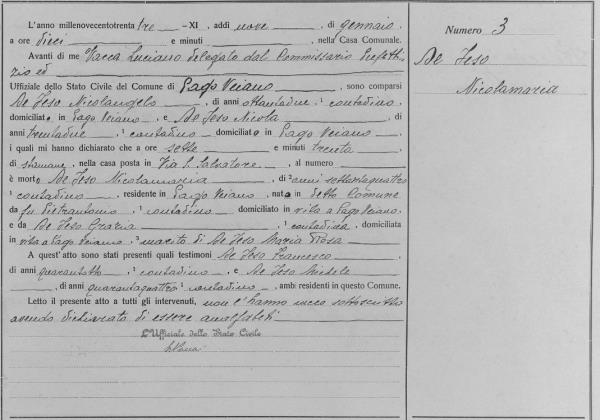 L'anno millenovecentotrenta tre -XI, addì nove, di gennaio,
a ore dieci e minuti, nella Casa Comunale.
Avanti di me Vacca Luciano delegato dal Commissario Prefetti
zio ed
Uffiziale dello Stato Civile del Comune di Pago Veiano, sono comparsi
De Ieso Nicolangelo, di anni ottantadue, ¹ contadino,
domiciliato in Pago Veiano, e De Ieso Nicola, di
anni trentadue, ¹ contadino domiciliato in Pago Veiano,
i quali mi hanno dichiarato che a ore sette e minuti trenta
di stamane, nella casa posta in Via S. Salvatore, al numero
è morto De Ieso Nicolamaria, di ² anni settantaquattro
¹ contadino, residente in Pago Veiano, nato in detto Comune
da fu Pietrantonio, ¹ contadino domiciliato in vita a Pago Veiano,
e da De Ieso Grazia, ¹ contadina, domiciliata
in vita a Pago Veiano, ³ marito di De Ieso Maria Rosa
A quest'atto sono stati presenti quali testimoni De Ieso Francesco
di anni quarantotto, ¹ contadino, e De Ieso Michele
di anni quarantaquattro ¹ contadino, ambi residenti in questo Comune.
Letto il presente atto a tutti gli intervenuti, non l'hanno meco sottoscritto
avendo dichiarato di essere analfabeti
L'Uffiziale dello Stato Civile
Numero 3
De Ieso
Nicolamaria